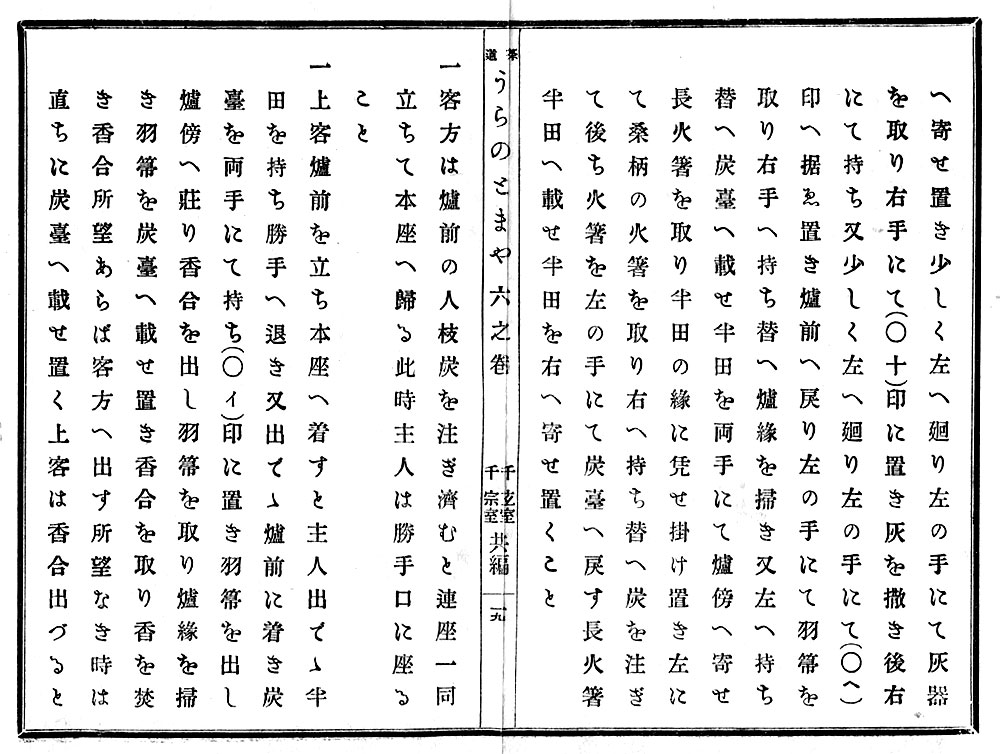 へ寄せ置き少しく左へ廻り左の手にて灰器
を取り右手にて(〇十)印に置き灰を撒き後右
にて持ち又少しく左へ廻り左の手にて(〇へ)
印へ据ゑ置き爐前へ戻り左の手にて羽箒を
取り右手へ持ち替へ爐緣を掃き又左へ持ち
替へ炭臺へ載せ半田を両手にて爐傍へ寄せ
長火箸を取り半田の緣に凭せ掛け置き左に
て桑柄の火箸を取り右へ持ち替へ炭を注ぎ
て後ち火箸を左の手にて炭臺へ戻す長火箸
半田へ載せ半田を右へ寄せ置くこと
茶道 うらのとまや六之卷 千玄室 千宗室 共編 一九
一客方は爐前の人枝炭を注ぎ濟むと連座一同
立ちて本座へ歸る此時主人は勝手口に座る
こと
一上客爐前を立ち本座へ着すと主人出でゝ半
田を持ち勝手へ退き又出でゝ爐前に着き炭
臺を両手にて持ち(〇イ)印に置き羽箒を出し
爐傍へ莊り香合を出し羽箒を取り爐緣を掃
き羽箒を炭臺へ載せ置き香合を取り香を焚
き香合所望あらば客方へ出す所望なき時は
直ちに炭臺へ載せ置く上客は香合出づると